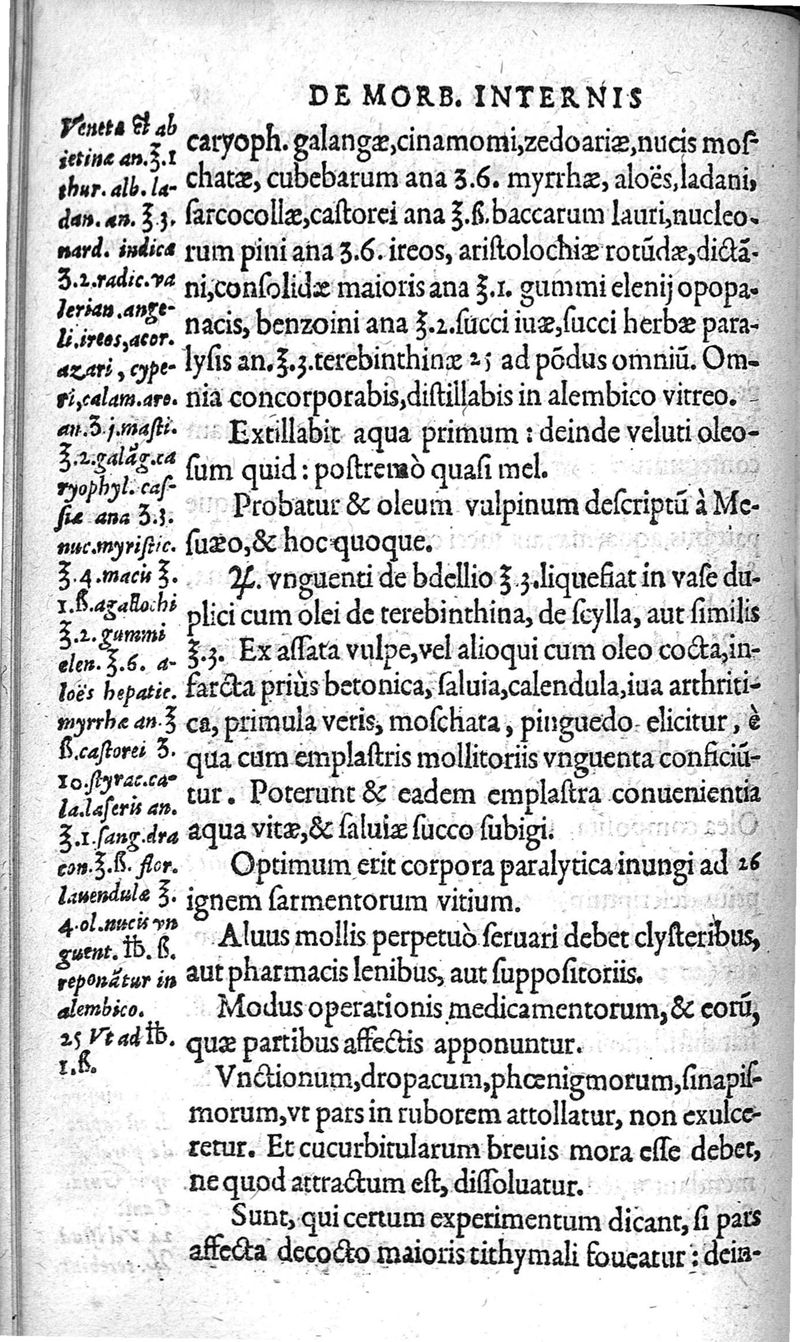 DE MORB. INTERNIS
caryoph. galangæ,cinamomi,zedoariæ,nucis moſ-
chatæ, cubebarum ana ʒ.6. myrrhæ, aloës,ladani,
ſarcocollæ,caſtorei ana ℥.ß.baccarum lauri,nucleo-
rum pini ana ʒ.6. ireos, ariſtolochiæ rotūdæ,dictā-
ni,conſolidæ maioris ana ℥.1. gummi elenij opopa-
nacis, benzoini ana ℥.2.ſucci iuæ,ſucci herbæ para-
lyſis an.℥.3.terebinthinæ 25 ad põdus omniū. Om-
nia concorporabis,diſtillabis in alembico vitreo.
Extillabit aqua primum : deinde veluti oleo-
ſum quid : poſtremò quaſi mel.
Probatur & oleum vulpinum deſcriptū à Me-
ſuæo,& hoc quoque.
♃. vnguenti de bdellio ℥.3.liquefiat in vaſe du-
plici cum olei de terebinthina, de ſcylla, aut ſimilis
℥.3. Ex aſſata vulpe,vel alioqui cum oleo cocta,in-
farcta priùs betonica, ſaluia,calendula,iua arthriti-
ca, primula veris, moſchata, pinguedo elicitur, è
qua cum emplaſtris mollitoriis vnguenta conficiū-
tur. Poterunt & eadem emplaſtra conuenientia
aqua vitæ,& ſaluiæ ſucco ſubigi.
Optimum erit corpora paralytica inungi ad 26
ignem ſarmentorum vitium.
Aluus mollis perpetuò ſeruari debet clyſteribus,
aut pharmacis lenibus, aut ſuppoſitoriis.
Modus operationis medicamentorum,& eorū,
quæ partibus affectis apponuntur.
Vnctionum,dropacum,phœnigmorum,ſinapiſ-
morum,vt pars in ruborem attollatur, non exulce-
retur. Et cucurbitularum breuis mora eſſe debet,
ne quod attractum eſt, diſſoluatur.
Sunt, qui certum experimentum dicant, ſi pars
affecta decocto maioris tithymali foueatur : dein-
Veneta & ab
ietinæ an.℥.1
thur. alb. la-
dan. an. ℥.3.
nard. indicæ
ʒ.2.radic.va
lerian.ange-
li.ireos,acor.
azari, cype-
ri,calam.aro.
an.ʒ.j.maſti.
℥.2.galāg.ca
ryophyl. caſ-
ſiæ ana ʒ.3.
nuc.myriſtic.
℥.4.macis ℥.
1.ß.agallochi
℥.2. gummi
elen. ℥.6. a-
loës hepatic.
myrrhæ an.℥
ß.caſtorei ʒ.
10.ſtyrac.ca-
la.laſeris an.
℥.1.ſang.dra
con.℥.ß. flor.
lauendulæ ℥.
4.ol.nucis vn
guent. ℔. ß.
reponātur in
alembico.
25 Vt ad ℔.
1.ß.